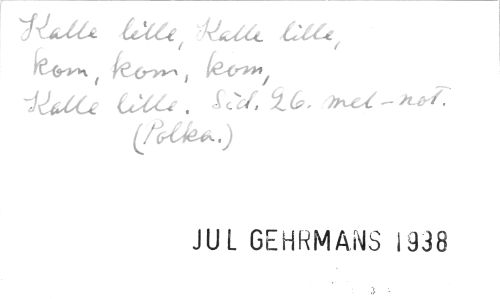 Kalle lille, Kalle lille,
kom, kom, kom,
Kalle lille. Sid. 26. mel-not.
(Polka.)
JUL GEHRMANS 1938